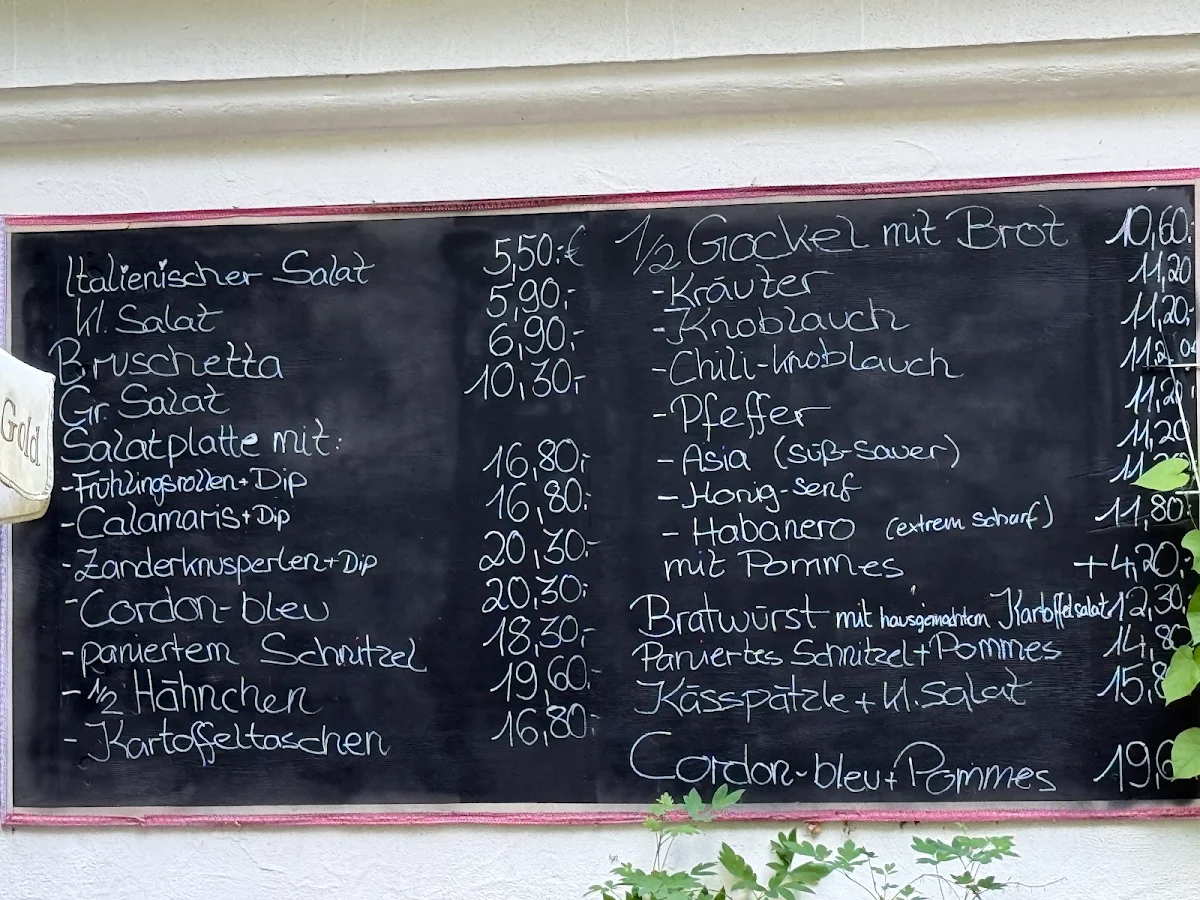 Gold
Italienischer Salat 5,50.-€
Kl. Salat 5,90,-
Bruschetta 6,90,-
Gr. Salat 10,30,-
Salatplatte mit:
-Frühlingsrollen+Dip 16,80,-
-Calamaris+Dip 16,80.-
-Zanderknusperlen+Dip 20,30,-
-Cordon-bleu 20,30.-
-paniertem Schnitzel 18,30,-
-1/2 Hähnchen 19,60.-
-Kartoffeltaschen 16,80-
1/2 Gockel mit Brot 10,60.
-Kräuter 11,20
-Knoblauch 11,20,-
-Chili-Knoblauch
-Pfeffer 11,20
-Asia (süß-sauer) 11,20
-Honig-Senf
-Habanero (extrem scharf) 11,80.
mit Pommes +4,20.-
Bratwürst mit hausgemachtem Kartoffelsalat 12,30
Paniertes Schnitzel+Pommes 14,80
Kässpätzle + Kl. Salat
Cordon-bleu+Pommes